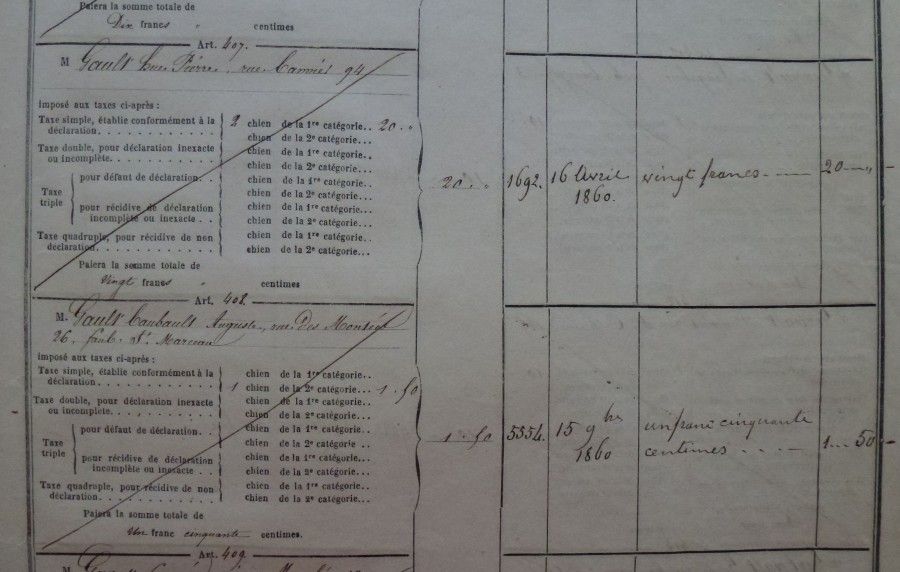 Paiera la somme totale de
Dix francs " centimes
Art. 407.
M Gault Pierre, rue 94
imposé aux taxes ci-après :
Taxe simple, établie conformément à la déclaration. 2 chien de la 1re catégorie.. 20 "
chien de la 2e catégorie...
Taxe double, pour déclaration inexacte ou incomplète. chien de la 1re catégorie..
chien de la 2e catégorie...
Taxe triple
pour défaut de déclaration. . chien de la 1re catégorie..
chien de la 2e catégorie...
pour récidive de déclaration incomplète ou inexacte . . chien de la 1re catégorie..
chien de la 2e catégorie...
Taxe quadruple, pour récidive de non déclaration. chien de la 1re catégorie..
chien de la 2e catégorie...
Paiera la somme totale de
Vingt francs " centimes
20 " 1692. 16 Avril 1860. vingt francs 20 "
Art. 408.
M. Gault Auguste, rue des
26. faub. St. Marceau
imposé aux taxes ci-après :
Taxe simple, établie conformément à la déclaration. chien de la 1re catégorie..
1 chien de la 2e catégorie... 1. 50
Taxe double, pour déclaration inexacte ou incomplète. chien de la 1re catégorie..
chien de la 2e catégorie...
Taxe triple
pour défaut de déclaration. . chien de la 1re catégorie..
chien de la 2e catégorie...
pour récidive de déclaration incomplète ou inexacte . . chien de la 1re catégorie..
chien de la 2e catégorie...
Taxe quadruple, pour récidive de non déclaration. chien de la 1re catégorie..
chien de la 2e catégorie...
Paiera la somme totale de
Un franc cinquante centimes.
1. 50 5354. 15 9bre 1860 un franc cinquante centimes 1 50
Art. 409.
M.